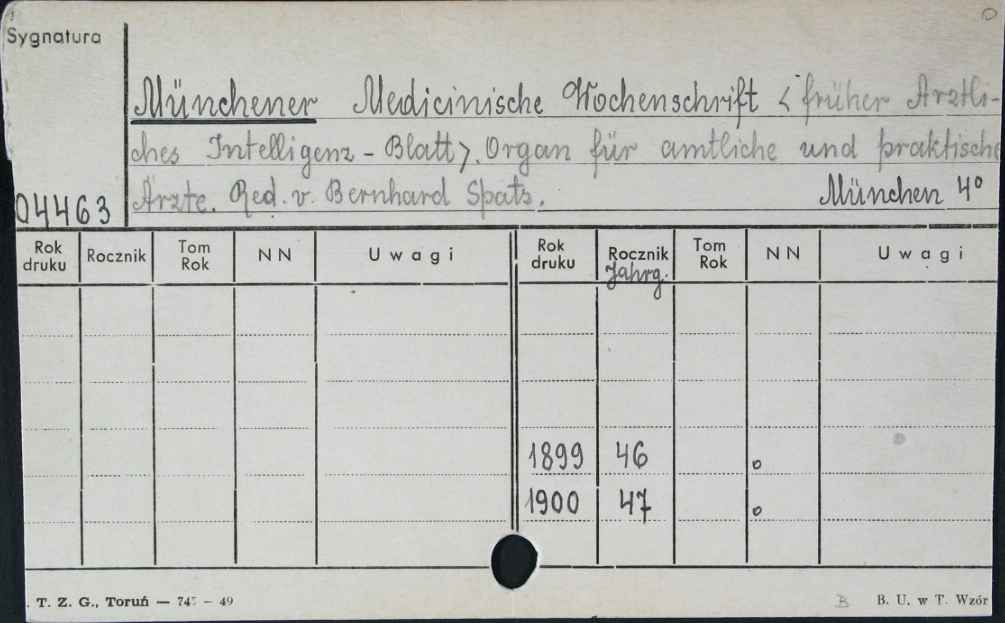 Sygnatura
Münchener Medicinische Wochenschrift < früher Arztli-
ches Intelligenz - Blatt >. Organ für amtliche und praktische
Arzte. Red. v. Bernhard Spatz. München 4°
04463
Rok druku Rocznik Tom Rok NN Uwagi Rok druku Rocznik Jahrg. Tom Rok NN Uwagi
1899 46 o
1900 47 o
. T. Z. G., Toruń — 745 – 49 B B. U. w T. Wzór